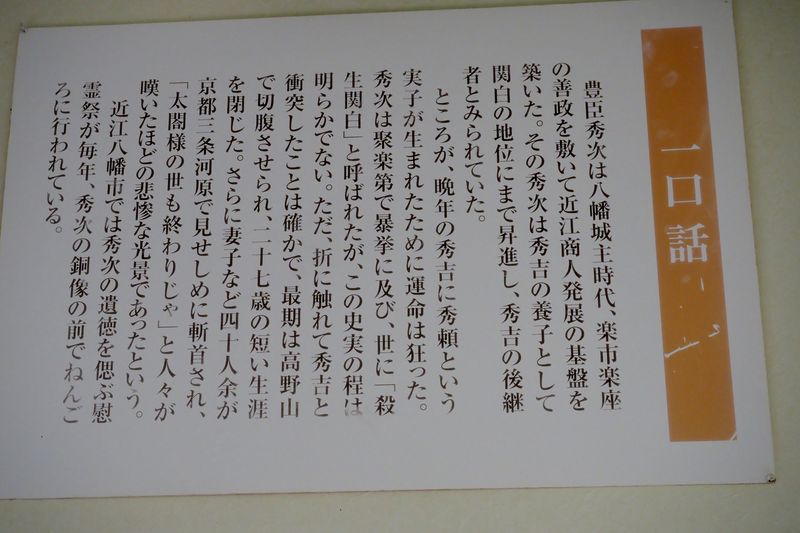 一口話
豊臣秀次は八幡城主時代、楽市楽座
の善政を敷いて近江商人発展の基盤を
築いた。その秀次は秀吉の養子として
関白の地位にまで昇進し、秀吉の後継
者とみられていた。
ところが、晩年の秀吉に秀頼という
実子が生まれたために運命は狂った。
秀次は聚楽第で暴挙に及び、世に「殺
生関白」と呼ばれたが、この史実の程は
明らかでない。ただ、折に触れて秀吉と
衝突したことは確かで、最期は高野山
で切腹させられ、二十七歳の短い生涯
を閉じた。さらに妻子など四十人余が
京都三条河原で見せしめに斬首され、
「太閤様の世も終わりじゃ」と人々が
嘆いたほどの悲惨な光景であったという。
近江八幡市では秀次の遺徳を偲ぶ慰
霊祭が毎年、秀次の銅像の前でねんご
ろに行われている。